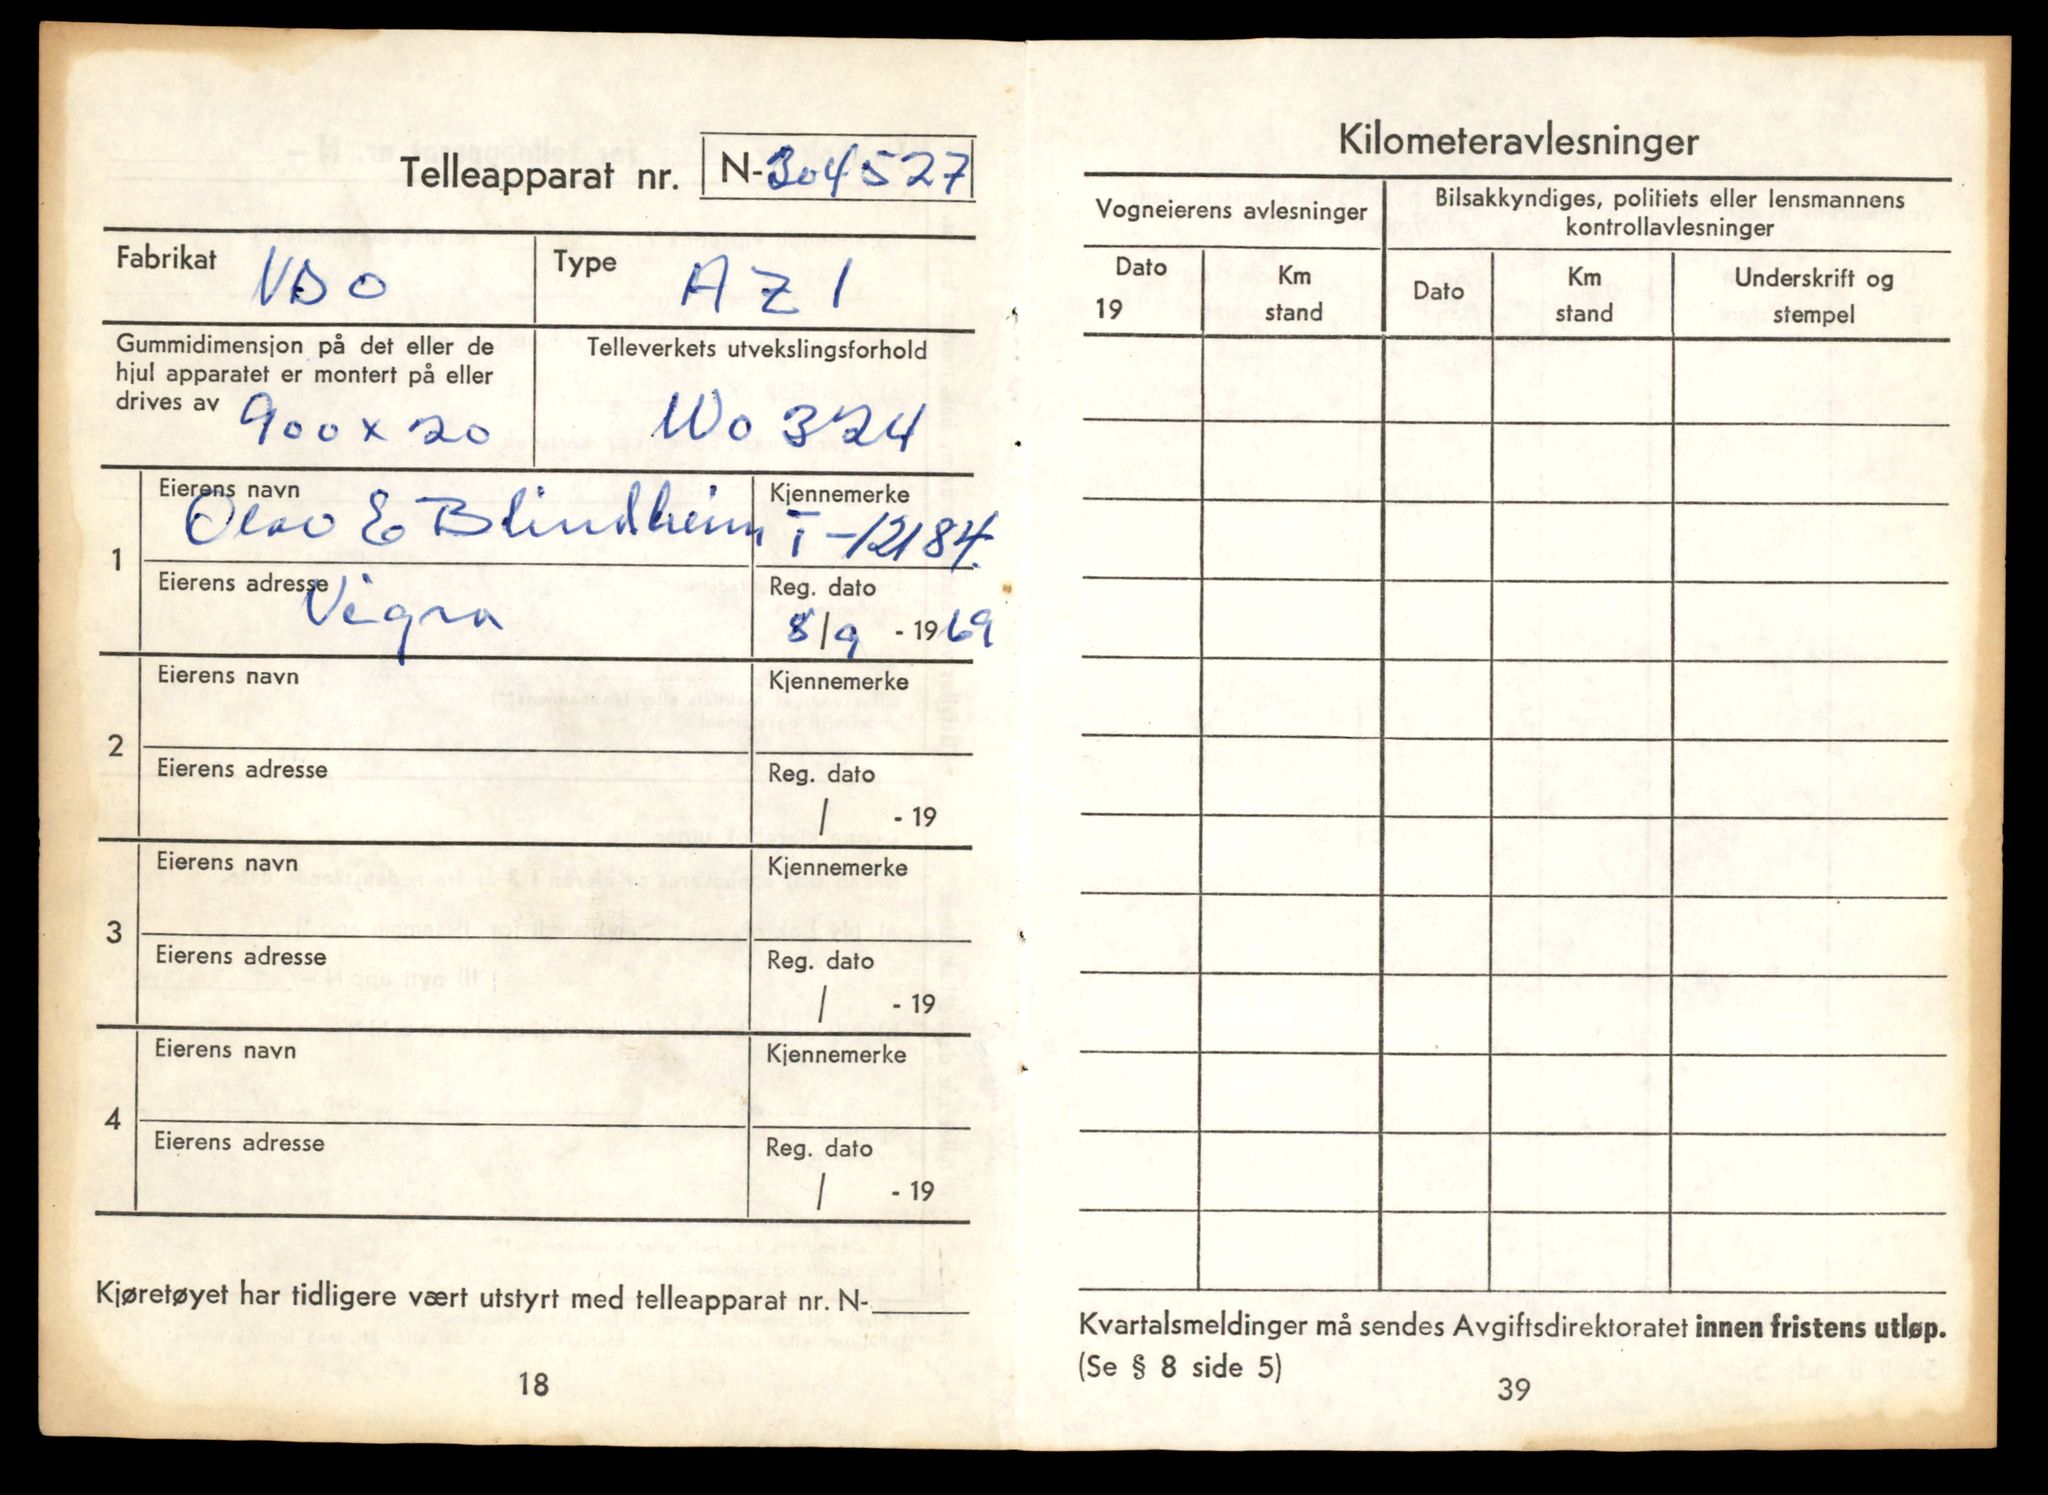 Telleapparat nr. N-304527
Fabrikat VDO Type AZ1
Gummidimensjon på det eller de
hjul apparatet er montert på eller
drives av 900 x 20
Telleverkets utvekslingsforhold
Wo 324
1
Eierens navn Olav E Blindheim
Kjennemerke T-12184.
Eierens adresse Vigra
Reg. dato
8/9 - 1969
2
Eierens navn
Kjennemerke
Eierens adresse
Reg. dato
/ - 19
3
Eierens navn
Kjennemerke
Eierens adresse
Reg. dato
/ - 19
4
Eierens navn
Kjennemerke
Eierens adresse
Reg. dato
/ - 19
Kjøretøyet har tidligere vært utstyrt med telleapparat nr. N-
18
Kilometeravlesninger
Vogneierens avlesninger
Bilsakkyndiges, politiets eller lensmannens
kontrollavlesninger
Dato
19
Km
stand
Dato
Km
stand
Underskrift og
stempel
Kvartalsmeldinger må sendes Avgiftsdirektoratet innen fristens utløp.
(Se § 8 side 5)
39